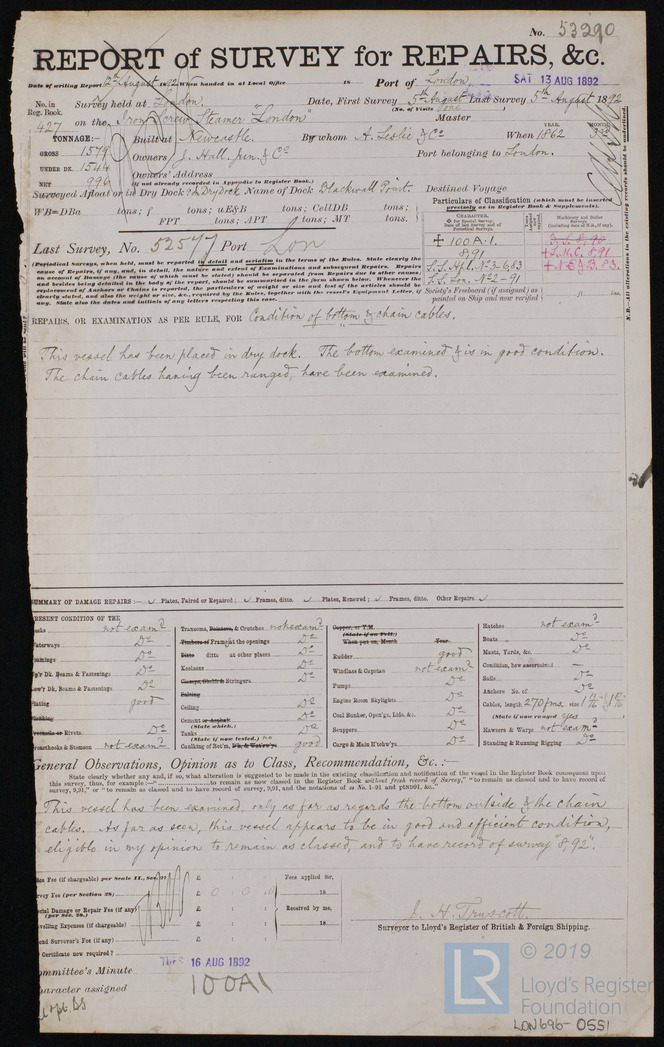 No. 53290
REPORT of SURVEY for REPAIRS, &c.
Date of writing Report 12th August 1892 When handed in at Local Office 18 Port of London
SAT 13 AUG 1892
No. in Reg. Book. Survey held at London. Date, First Survey 5th August Last Survey 5th August 1892
(No. of Visits one)
427 on the Iron Screw Steamer "London" Master
TONNAGE:— Built at Newcastle. By whom A. Leslie & Co When 1862
YEAR. MONTH.
GROSS 1579 Owners J. Hall, jun. & Co Port belonging to London.
UNDER DK. 1544 Owners' Address
NET 996 (if not already recorded in Appendix to Register Book.)
Surveyed Afloat or in Dry Dock? Dry Dock Name of Dock Blackwall Point. Destined Voyage
WB=DBa tons; f tons; uE&B tons; CellDB tons;
FPT tons; APT tons; MT tons.
Particulars of Classification (which must be inserted precisely as in Register Book & Supplements).
CHARACTER. Machinery and Boiler Surveys
100A.1.
8,91 L.M.C. 8,91
S.S. Hpl. No3-6,83
S.S. Lon. No2-91
Society's Freeboard (if assigned) as painted on Ship and now verified
Last Survey, No. 52577 Port Lon
(Periodical Surveys, when held, must be reported in detail and seriatim in the terms of the Rules. State clearly the
cause of Repairs, if any, and, in detail, the nature and extent of Examinations and subsequent Repairs. Repairs
on account of Damage (the cause of which must be stated) should be separated from Repairs due to other causes,
and besides being detailed in the body of the report, should be summarised in the form shown below. Whenever the
replacement of Anchors or Chains is reported, the particulars of weight or size and test of the articles should be
clearly stated, and also the weight or size, &c., required by the Rules, together with the vessel's Equipment Letter, if
any. State also the dates and initials of any letters respecting this case.
N.B.—All alterations in the existing records should be underlined.
REPAIRS, OR EXAMINATION AS PER RULE, FOR Condition of bottom & chain cables.
This vessel has been placed in dry dock. The bottom examined & is in good condition.
The chain cables having been ranged, have been examined.
SUMMARY OF DAMAGE REPAIRS :— Plates, Faired or Repaired; Frames, ditto. Plates, Renewed; Frames, ditto. Other Repairs
PRESENT CONDITION OF THE
Decks not examd
Waterways Do
Coamings Do
Up'r Dk. Beams & Fastenings Do
Low'r Dk. Beams & Fastenings Do
Plating good
Caulking
Treenails or Rivets Do
Breasthooks & Stemson not examd
Transoms, Pointers, & Crutches not examd
Timbers of Frame at the openings Do
Ditto ditto at other places Do
Keelsons Do
Clamps, Shelfs & Stringers Do
Salting
Ceiling Do
Cement or Asphalt (State which.) Do
Tanks (State if now tested.) no Do
Caulking of Bot'm, D'k, & Wat'rw'ys good
Copper, or Y.M. (State if on Felt.)
When put on, Month Year
Rudder good
Windlass & Capstan not examd
Pumps Do
Engine Room Skylights Do
Coal Bunker, Open'gs, Lids, &c. Do
Scuppers Do
Cargo & Main H'tchw'ys Do
Hatches not examd
Boats Do
Masts, Yards, &c. Do
Condition, how ascertained —
Sails Do
Anchors No. of Do
Cables, length 270 fms. size
(State if now ranged yes)
Hawsers & Warps not examd
Standing & Running Rigging Do
General Observations, Opinion as to Class, Recommendation, &c. :—
State clearly whether any and, if so, what alteration is suggested to be made in the existing classification and notification of the vessel in the Register Book consequent upon
this survey, thus, for example:— to remain as now classed in the Register Book without fresh record of Survey," "to remain as classed and to have record of
survey, 9,91," or "to remain as classed and to have record of survey, 9,91, and the notations of ss No. 1-91 and ptNB91, &c."
This vessel has been examined, only as far as regards the bottom outside & the chain
cables. As far as seen, this vessel appears to be in good and efficient condition,
eligible in my opinion to remain as classed, and to have record of survey "8,92".
Fee (if chargeable) per Scale II., Sec. £ : : Fees applied for,
Survey Fee (per Section 28) £ 0 : 0 : 0 18
Special Damage or Repair Fee (if any) (per Sec. 28.) £ : : Received by me,
Travelling Expenses (if chargeable) £ : : 18
2nd Surveyor's Fee (if any) £ : :
Certificate now required?
J. H. Truscott.
Surveyor to Lloyd's Register of British & Foreign Shipping.
Committee's Minute TUES 16 AUG 1892
Character assigned 100A1
LR © 2019
Lloyd's Register
Foundation
LON696-0551